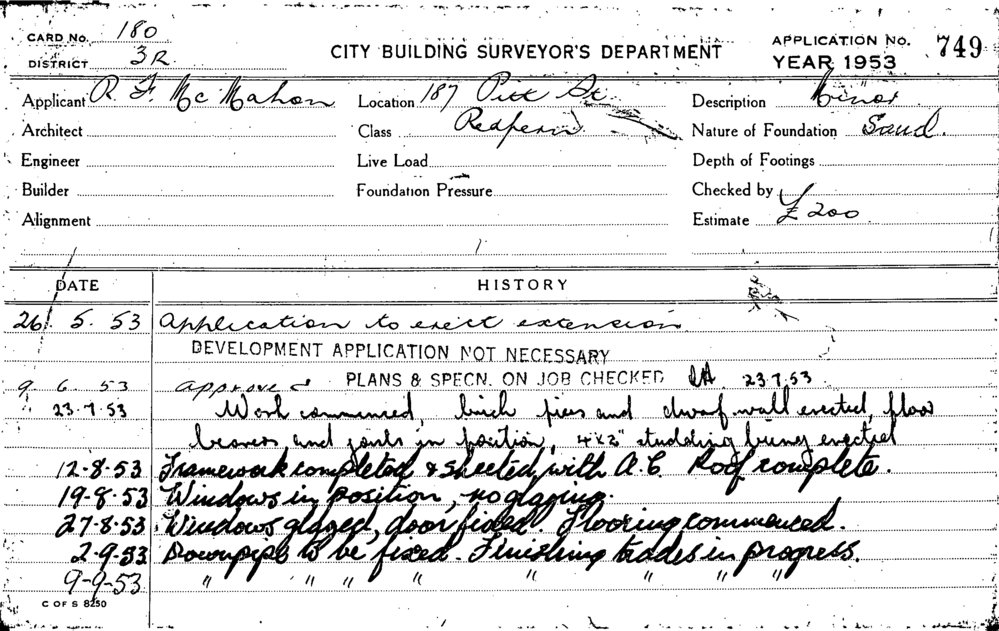 CARD No. 180
DISTRICT 3R
CITY BUILDING SURVEYOR'S DEPARTMENT
APPLICATION No. 749
YEAR 1953
Applicant R. F. McMahon
Location 187 Pitt St
Description Minor
Architect
Class Redfern
Nature of Foundation Sand.
Engineer
Live Load
Depth of Footings
Builder
Foundation Pressure
Checked by
Alignment
Estimate £200
DATE HISTORY
26. 5. 53 Application to erect extension
DEVELOPMENT APPLICATION NOT NECESSARY
9 6. 53 Approved PLANS & SPECN. ON JOB CHECKED 23.7.53
23.7.53 Work commenced, brick piers and dwarf wall erected, floor
bearers and joists in position, 4"x2" studding being erected
12-8-53 Framework completed & sheeted with A.C. Roof complete.
19-8-53 Windows in position, no glazing.
27-8-53 Windows glazed, door fixed. Flooring commenced.
2-9-53 Downpipe to be fixed. Finishing trades in progress.
9-9-53 " " " " " " " "
C OF S 8250